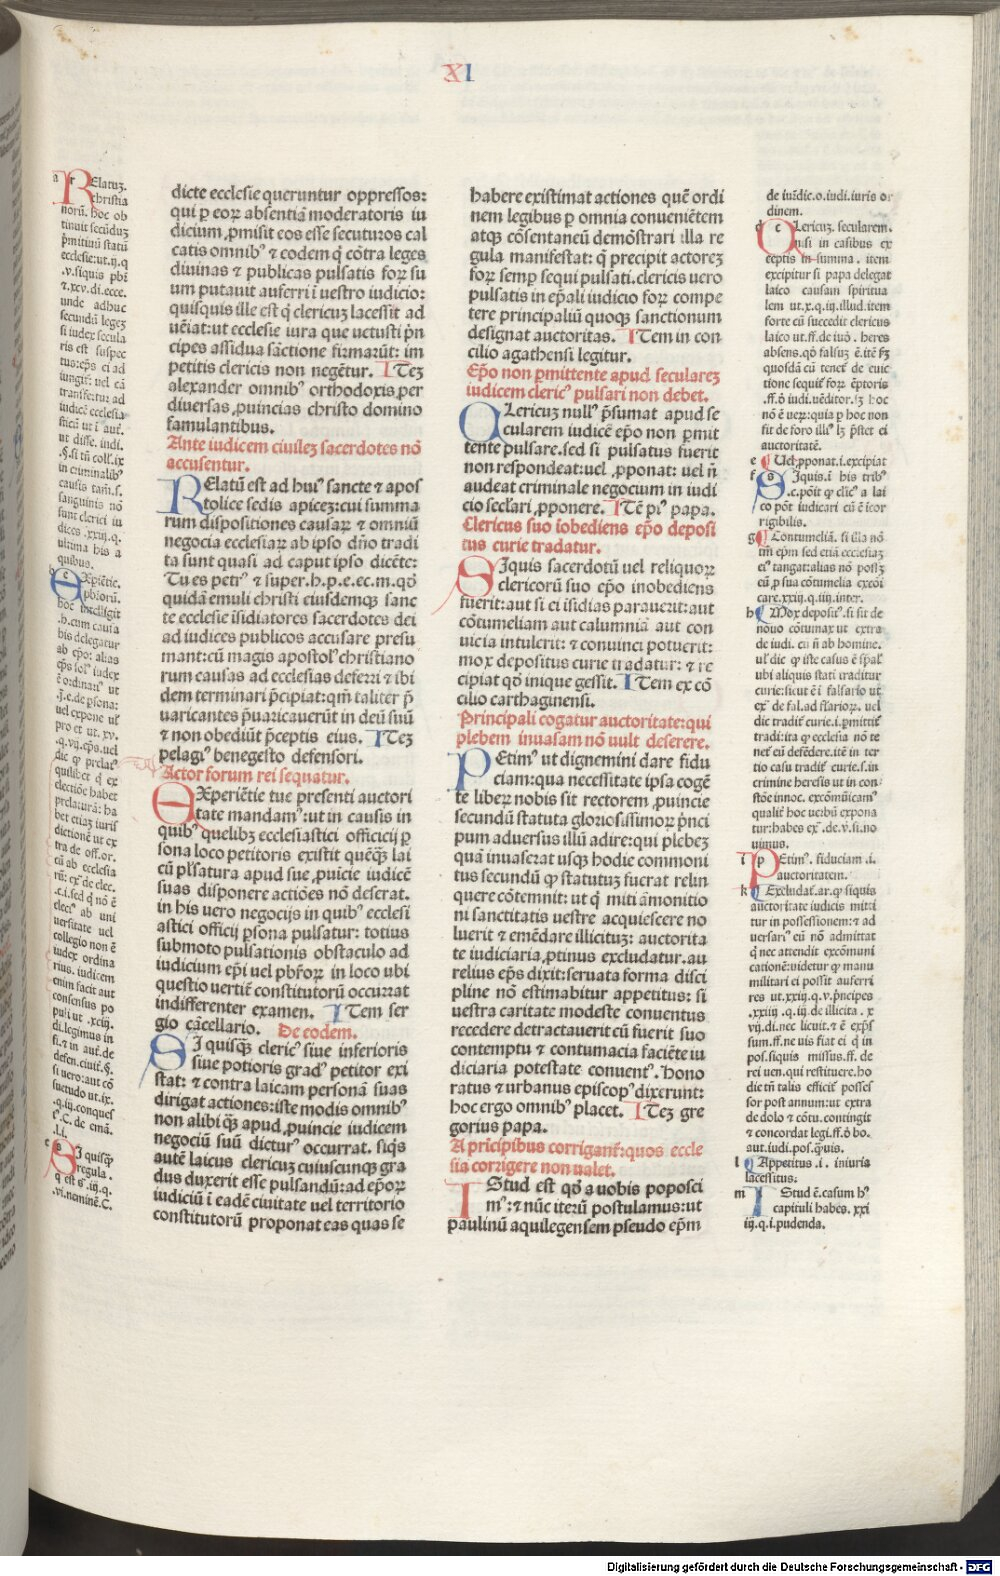 XI
a r Elatuꝫ.
christia
norū. hoc ob
tinuit secūduꝫ
p̄mitiuū statū
ecclesie:ut.ij.q
.v.siquis pbr̄i
⁊.xcv.di.ecce.
unde adhuc
secundū legeꝫ
si iudex secula
ris est suspec
tus:ep̄s ei ad
iungit᷑ uel cā
transfer̄tur ad
iudicē ecclesia
ut disse. iudi.
in criminalibꝰ
causis tam.s.
sanguinis nō
sunt clerici iu
dices .xxiij.q.
ultima his a
quibus.
b e Xpiētie.
pbr̄orū.
hoc intelligit
.h.cum causa
his delegatur
ab ep̄o: alias
ep̄s solꝰ iudex
ē ordinariꝰ ut
.j.e.de p̄sona:
uel expone utꝰ
pro et ut. xv.
.q.vij.ep̄s.uel
dic ꝙ prelatꝰ
quilibet q̄ ex
electiōe habet
prelaturā: ha
bet etiaꝫ iuris
dictionē ut ex
tra de off.or.
cū ab ecclesia
rū: exͣ de elec.
.c.i.sed q̄ nō ē
electꝰ ab uni
uersitate uel
collegio non ē
iudex ordina
rius. iudicem
enim facit aut
consensus po
puli ut .xciij.
di.legimus in
fi.⁊ in aut̄.de
defen.ciuit̄.§.
si uero:aut cō
suetudo ut.ix.
.q.iij.conques
tꝰ.C. de emā.
.l.i.
c s I quisꝙ
regula .
q est sͣ.iij.q.
.vi.neminē.C.
dicte ecclesie queruntur oppressos:
qui p eoꝝ absentiā moderatoris iu
dicium ꝓmisit eos esse secuturos cal
catis omnibꝰ ⁊ codem q̄ cōtra leges
diuinas ⁊ publicas pulsatis foꝝ su
um putauit auferri ī uestro iudicio:
quisquis ille est q̄ clericuꝫ lacessit ad
uēiat:ut ecclesie iura que uetusti p̄n
cipes assidua sāctione firmarūt: im
petitis clericis non negētur. ITeꝫ
alexander omnibꝰ orthodoxis per
diuersas ꝓuincias christo domino
famulantibus.
Ante iudicem ciuileꝫ sacerdotes nō
accusentur.
RElatū est ad huiꝰ sancte ⁊ apos
tolice sedis apiceꝫ:cui summa
rum dispositiones causaꝝ ⁊ omniū
negocia ecclesiaꝝ ab ipso dn̄o tradi
ta sunt quasi ad caput ipso dicēte:
Tu es petrꝰ ⁊ super.h.p.e.ec.m.qō
quidā emuli christi eiusdemqꝫ sanc
te ecclesie īsidiatores sacerdotes dei
ad iudices publicos accusare presu
mant:cū magis apostolꝰ christiano
rum causas ad ecclesias deferri ⁊ ibi
dem terminari p̄cipiat:qm̄ taliter p̄
uaricantes p̄uaricauerūt in deū suū
⁊ non obediūt p̄ceptis eius. ITeꝫ
pelagiꝰ benegesto defensori.
Actor forum rei sequatur.
EXperiētie tue presenti auctori
tate mandamꝰ:ut in causis in
quibꝰ quelibꝫ ecclesiastici officicij p
sona loco petitoris existit quēqꝫ lai
cū pl̄satura apud sue ꝓuicie iudicē
suas disponere actiōes nō deserat.
in his uero negocijs in quibꝰ ecclesi
astici officij p̄sona pulsatur: totius
submoto pulsationis obstaculo ad
iudicium ep̄i uel pbr̄oꝝ in loco ubi
questio uertit᷑ constitutorū occurrat
indifferenter examen. ITem ser
gio cācellario. De eodem.
SI quisqꝫ clericꝰ siue inferioris
siue potioris gradꝰ petitor exi
stat: ⁊ contra laicam personā suas
dirigat actiones:iste modis omnibꝰ
non alibi qꝫ apud ꝓuincie iudicem
negociū suū dicturꝰ occurrat. siq̄s
autē laicus clericuꝫ cuiuscunqꝫ gra
dus duxerit esse pulsandū:ad ep̄oꝝ
iudiciū ī eadē ciuitate uel territorio
constitutorū proponat eas quas se
habere existimat actiones quē ordi
nem legibus p omnia conueniētem
atqꝫ cōsentaneū demōstrari illa re
gula manifestat: q̄ precipit actoreꝫ
foꝝ semp sequi pulsati.clericus uero
pulsatus in ep̄ali iudicio foꝝ compe
tere principaliū quoqꝫ sanctionum
designat auctoritas. ITem in con
cilio agathensi legitur.
Ep̄o non ꝑmittente apud seculareꝫ
iudicem clericꝰ pulsari non debet.
CLericuꝫ nullꝰ p̄sumat apud se
cularem iudicē ep̄o non ꝑmit
tente pulsare.sed si pulsatus fuerit
non respondeat:uel ꝓponat: uel n̄
audeat criminale negocium in iudi
cio secl̄ari ꝓponere. ITē piꝰ papa.
Clericus suo īobediens ep̄o deposi
tus curie tradatur.
SIquis sacerdotū uel reliquoꝝ
clericorū suo ep̄o inobediens
fuerit:aut si ei īsidias parauerit:aut
cōtumeliam aut calumniā aut con
uicia intulerit: ⁊ conuinci potuerit:
mox depositus curie tradatur: ⁊ re
cipiat qō inique gessit. ITem ex cō
cilio carthaginensi.
Principali cogatur auctoritate:qui
plebem inuasam nō uult deserere.
PEtimꝰ ut dignemini dare fidu
ciam:qua necessitate ipsa cogē
te liberꝫ nobis sit rectorem ꝓuincie
secundū statuta gloriosissimoꝝ p̄nci
pum aduersus illū adire:qui plebeꝫ
quā inuaserat usqꝫ hodie commoni
tus secundū ꝙ statutuꝫ fuerat relin
quere cōtemnit: ut q̄ miti āmonitio
ni sanctitatis uestre acquiescere no
luerit ⁊ emēdare illicituꝫ: auctorita
te iudiciaria ꝓtinus excludatur. au
relius ep̄s dixit:seruata forma disci
pline nō estimabitur appetitus: si
uestra caritate modeste conuentus
recedere detractauerit cū fuerit suo
contemptu ⁊ contumacia faciēte iu
diciaria potestate conuentꝰ. Hono
ratus ⁊ urbanus episcopꝰ dixerunt:
hoc ergo omnibꝰ placet. ITeꝫ gre
gorius papa.
A pricipibus corrigant᷑:quos eccle
sia corrigere non ualet.
IStud est qō a uobis poposci
mꝰ:⁊ nūc iterū postulamus:ut
paulinū aquilegensem pseudo ep̄m
de iur̄dic.o.iudi.iuris or
dinem.
d c Lericuꝫ. secularem.
nisi in casibus ex
ceptis in summa . item
excipitur si papa delegat
laico causam spiritua
lem ut.x.q.iij.illud.item
forte cū succedit clericus
laico ut.ff.de iud̄ . heres
absens.qō falsuꝫ ē.itē ẜꝫ
quosdā cū tenet᷑ de euic
tione sequit᷑ foꝝ ēptoris
.ff.ō iudi.uēditor.lꝫ hoc
nō ē ueꝝ:quia p hoc non
fit de foro illiꝰ lꝫ p̄stet ei
auctoritatē.
e Uel ꝓponat.i.excipiat
f s Iquis.ī his tribꝰ
.c.pōit ꝙ cl̄icꝰ a lai
co pōt iudicari cū ē icor
rigibilis.
g Contumeliā. si illa nō
m̄ ep̄m sed etiā ecclesiaꝫ
eiꝰ tangat:alias nō posꝫ
cū ꝓ sua cōtumelia excōi
care.xxiij.q.iiij.inter.
h Mox depositꝰ.si sit de
nouo cōtumax ut extra
de iudi. cū n̄ ab homine.
ulꝰ dic ꝙ iste casus ē sp̄alꝰ
ubi aliquis stati traditur
curie:sicut ē ī falsario ut
exͣ de fal.ad fl̄arioꝝ. uel
dic tradit᷑ curie.i.ꝑmittit᷑
tradi:ita ꝙ ecclesia nō te
net᷑ cū defēdere.itē in ter
tio casu tradit᷑ curie.s.in
crimine heresis ut in con
stōe innoc. excōm̄icamꝰ
qualit᷑ hoc uerbū expona
tur:habes exͣ.de.v.si.no
uimus.
i p Etimꝰ. fiduciam .i.
auctoritatem.
k Excludat᷑.ar.ꝙ siquis
auctoritate iudicis mitti
tur in possessionem:⁊ ad
uersariꝰ eū nō admittat
q̄ nec attendit excōmuni
cationē:uidetur ꝙ manu
militari ei possit auferri
res ut.xxiij.q.v.p̄ncipes
.xxiij .q.iij.de illicita .x
vij.di.nec licuit.⁊ ē exp̄s
sum.ff.ne uis fiat ei q̄ in
pos.siquis missus.ff. de
rei uen.qui restituere.ho
die tn̄ talis efficit᷑ posses
sor post annum:ut extra
de dolo ⁊ cōtu.contingit
⁊ concordat legi.ff.ō bo.
aut.iudi.pos.q̄uis.
l Appetitus .i. iniuria
lacessitus:
m I Stud ē.casum hꝰ
capituli habes. xxi
iij.q.i.pudenda.
Digitalisierung gefördert durch die Deutsche Forschungsgemeinschaft - DFG